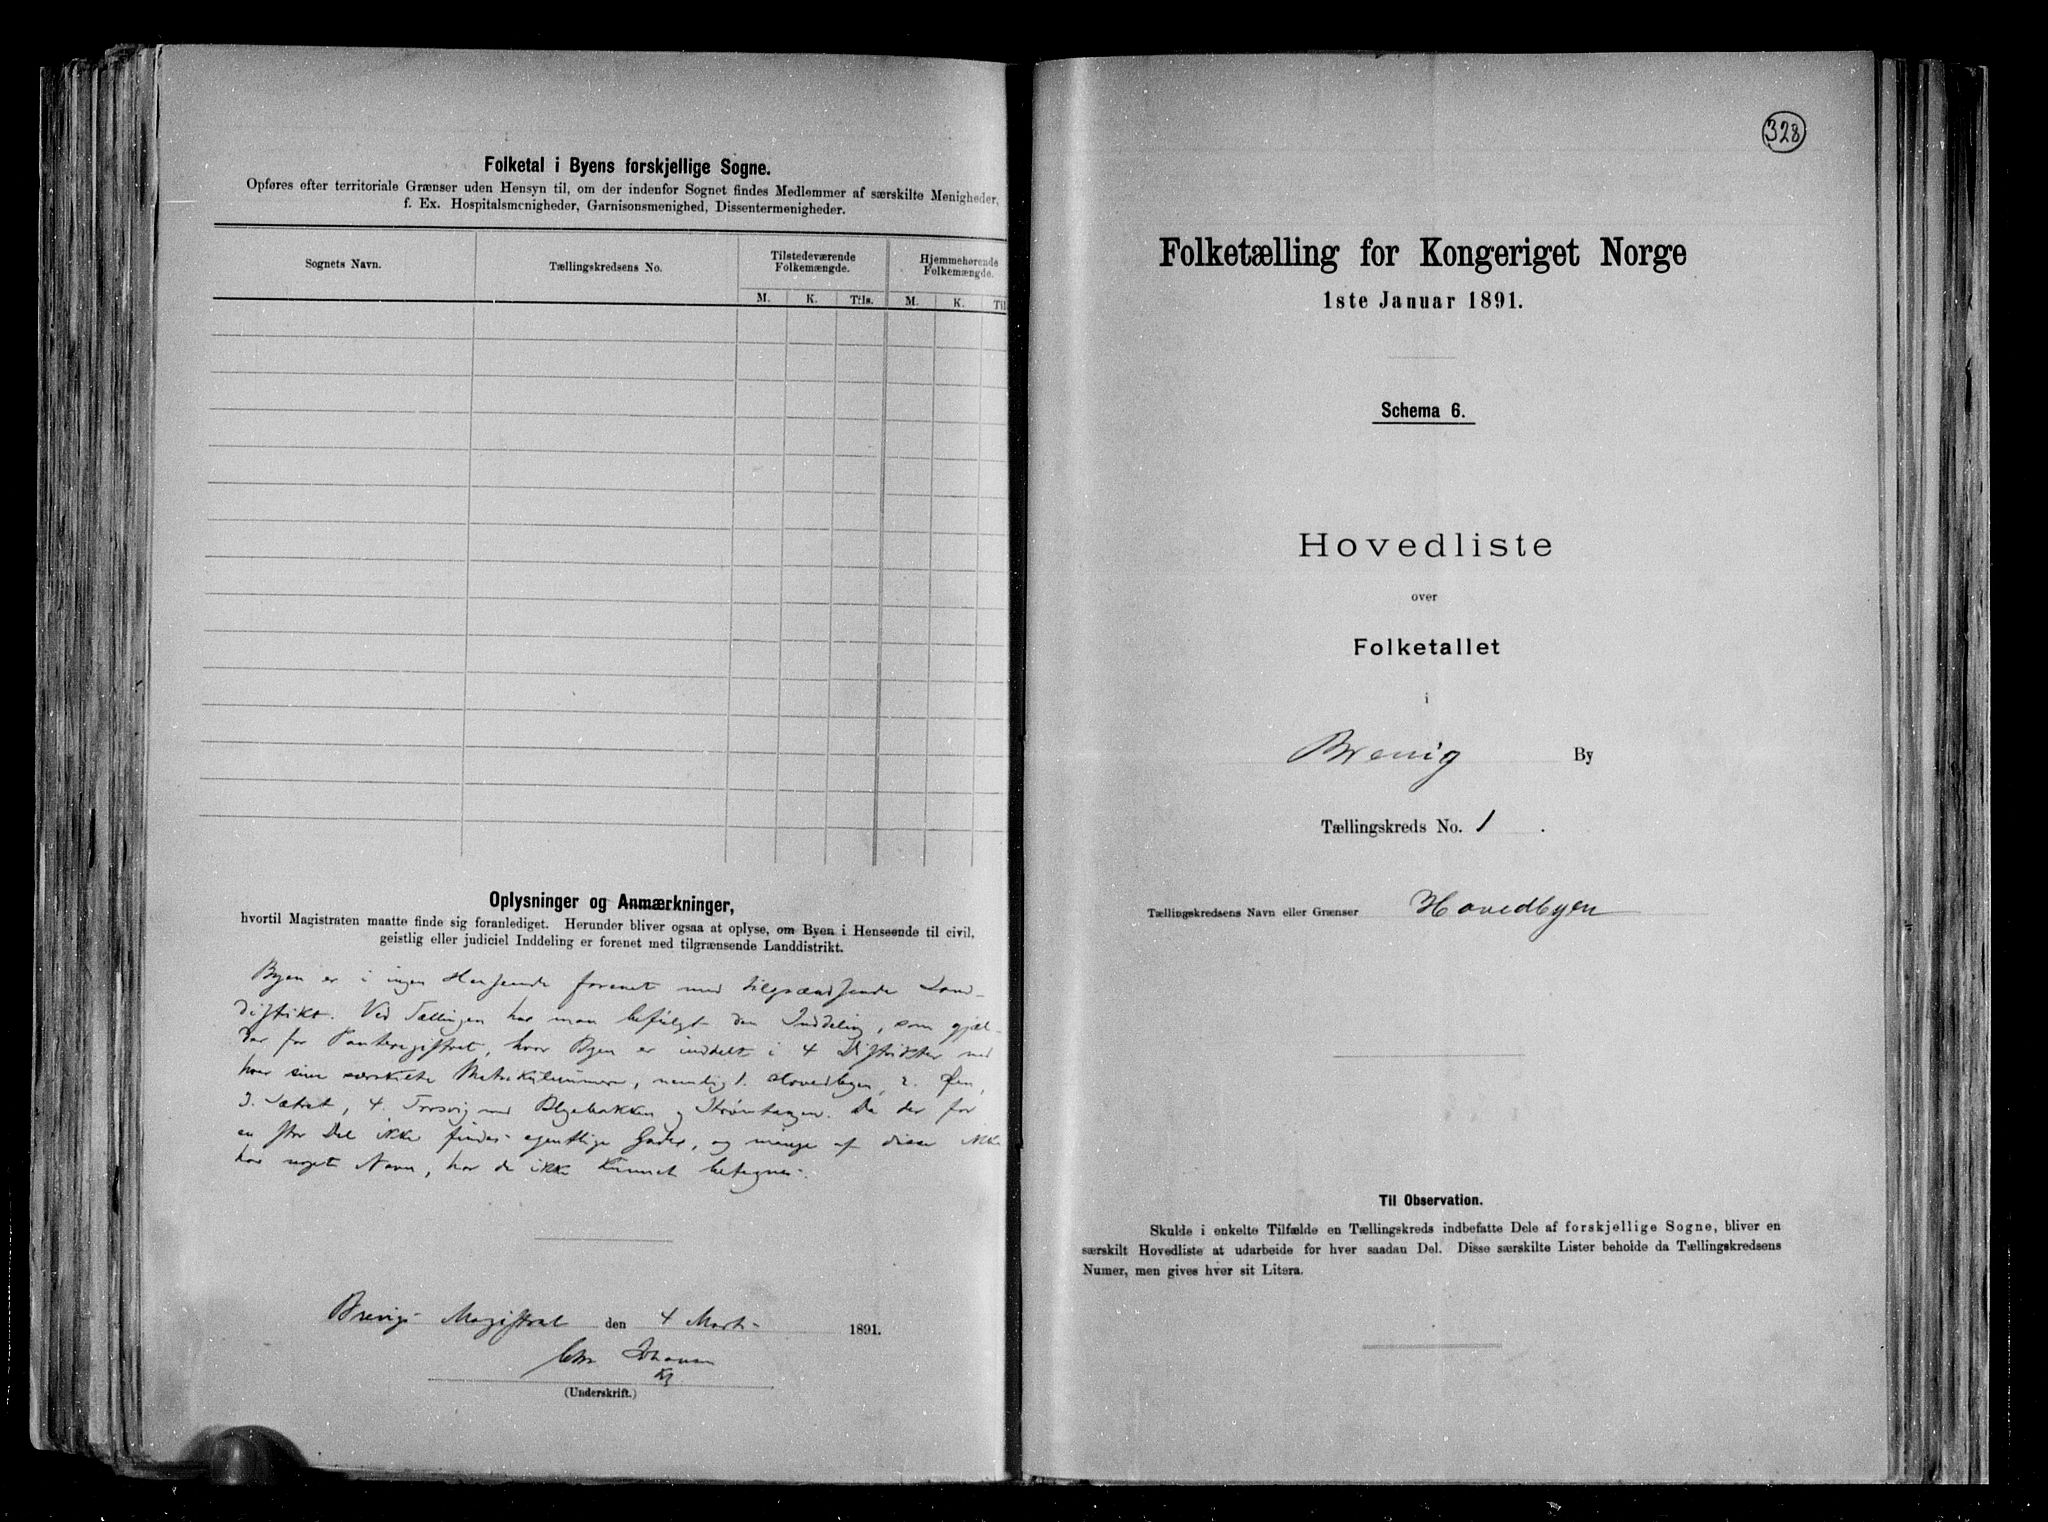 Folketal i Byens forskjellige Sogne.
Opføres efter territoriale Grænser uden Hensyn til, om der indenfor Sognet findes Medlemmer af særskilte Menigheder,
f. Ex. Hospitalsmenigheder, Garnisonsmenighed, Dissentermenigheder.
Sognets Navn.
Tællingskredsens No.
Tilstedeværende
Folkemængde.
Hjemmehørende
Folkemængde.
M. K. Tils. M. K. Til
Oplysninger og Anmærkninger,
hvortil Magistraten maatte finde sig foranlediget. Herunder bliver ogsaa at oplyse, om Byen i Henseende til civil,
geistlig eller judiciel Inddeling er forenet med tilgrænsende Landdistrikt.
Byen er i ingen Henseende forenet med tilgrændsende Land-
distrikt. Ved Tællingen har man befulgt den Inddeling, som gjæl-
der for Panteregistret, hvor Byen er inddelt i 4 Distrikter med
hver sine særskilte Matrikulnumere, nemlig 1. Hovedbyen, 2. Øen,
3. Sætret, 4. Trosvig med Blegebakken og Strømtangen. Da der for
en stor Del ikke findes egentlige Gader, og mange af disse ikke
har noget Navn, har de ikke kunnet betegnes.
Brevigs Magistrat den 4 Marts 1891.
Chr Johansen
(Underskrift.)
328
Folketælling for Kongeriget Norge
1ste Januar 1891.
Schema 6.
Hovedliste
over
Folketallet
i
Brevig By
Tællingskreds No. 1.
Tællingskredsens Navn eller Grænser Hovedbyen
Til Observation.
Skulde i enkelte Tilfælde en Tællingskreds indbefatte Dele af forskjellige Sogne, bliver en
særskilt Hovedliste at udarbeide for hver saadan Del. Disse særskilte Lister beholde da Tællingskredsens
Numer, men gives hver sit Litera.